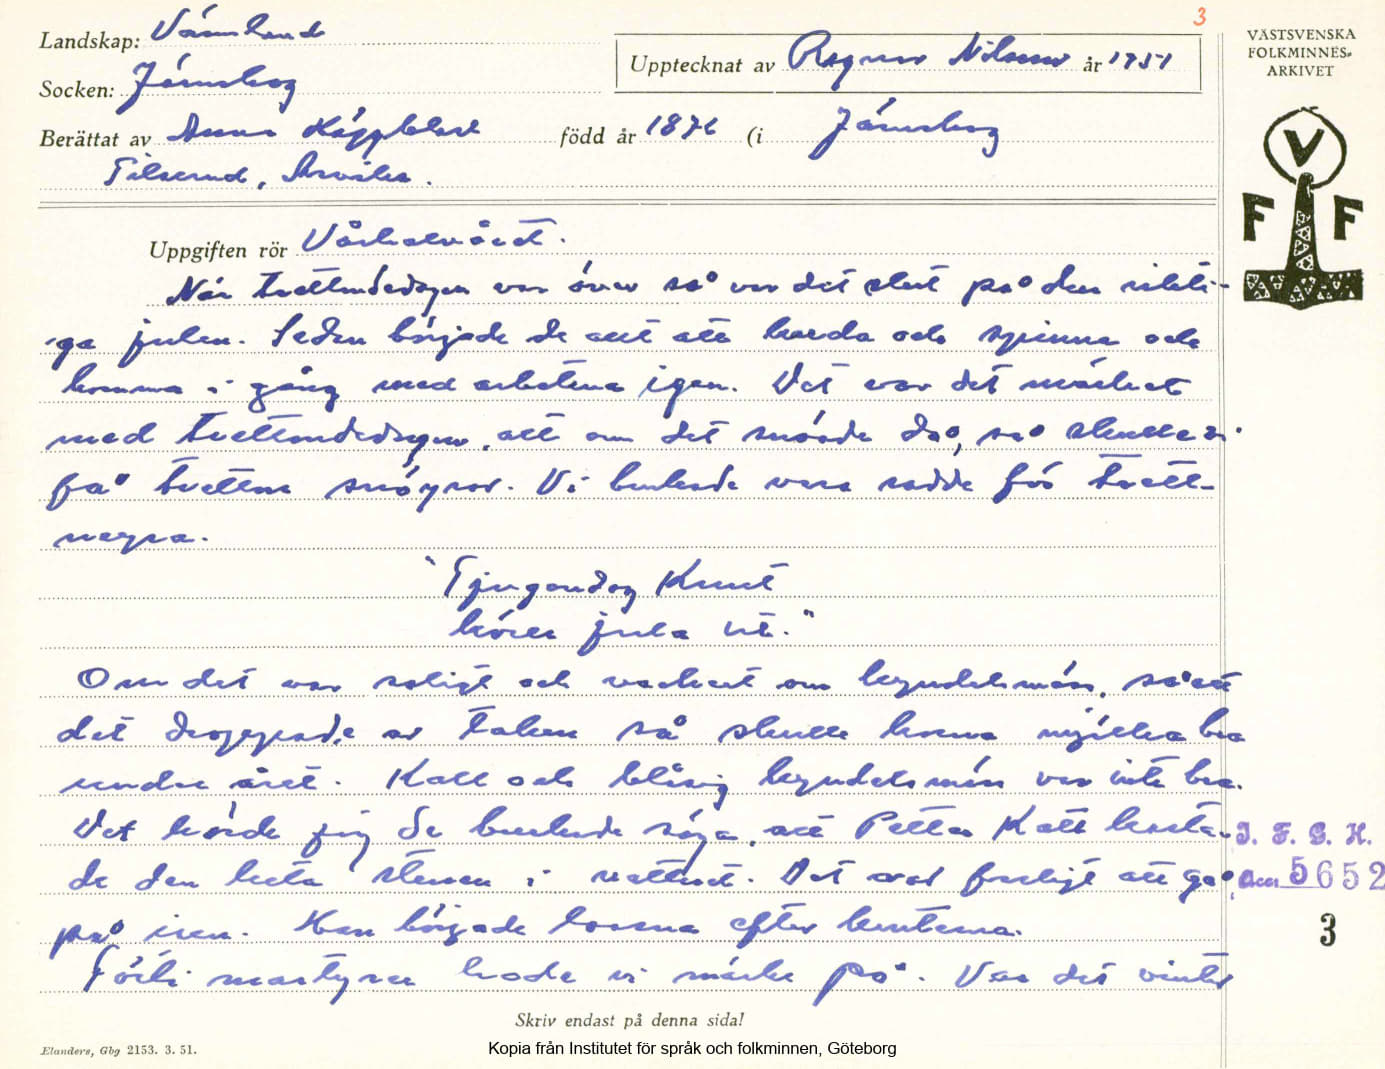 3
Landskap: Värmland
Upptecknat av Ragnar Nilsson år 1951
VÄSTSVENSKA
FOLKMINNES-
ARKIVET
Socken: Järnskog
Berättat av Anna Käppblad född år 1876 (i Järnskog
Tilserud, Arvika.
V
F F
Uppgiften rör Vårhalvåret.
När trettondedagen var över så var det slut på den rikti-
ga julen. Sedan började de att att karda och spinna och
komma i gång med arbetena igen. Det var det märket
med trettondedagen, att om det snöade då, så skulle vi
få tretton snöyror. Vi brukade vara rädda för trett-
nayra.
"Tjugondag Knut
körer jula ut."
Om det var soligt och vackert om kyndelsmäss, så att
det droppade av taken så skulle korna mjölka bra
under året. Kall och blåsig kyndelsmäss var inte bra.
Det hörde jag de brukade säga, att Petter Katt kasta-
de den heta stenen i vattnet. Det var farligt att gå
på isen. Han började lossna efter kanterna.
Förti martyrer hade vi märke på. Var det vinter
I. F. G. H.
Acc. 5652
3
Skriv endast på denna sida!
Elanders, Gbg 2153. 3. 51.
Kopia från Institutet för språk och folkminnen, Göteborg